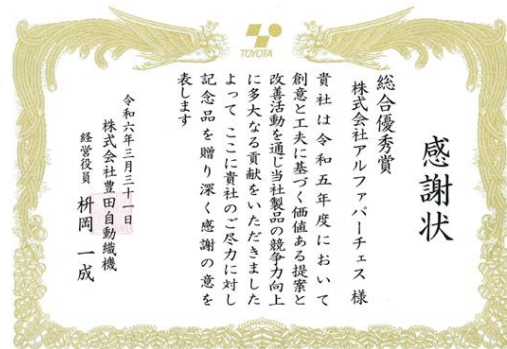 TOYOTA
感謝状
総合優秀賞
株式会社アルファパーチェス 様
貴社は令和五年度において
創意と工夫に基づく価値ある提案と
改善活動を通じ当社製品の競争力向上
に多大なる貢献をいただきました
よって ここに貴社のご尽力に対し
記念品を贈り深く感謝の意を
表します
令和六年三月三十一日
株式会社豊田自動織機
経営役員 枡岡 一成